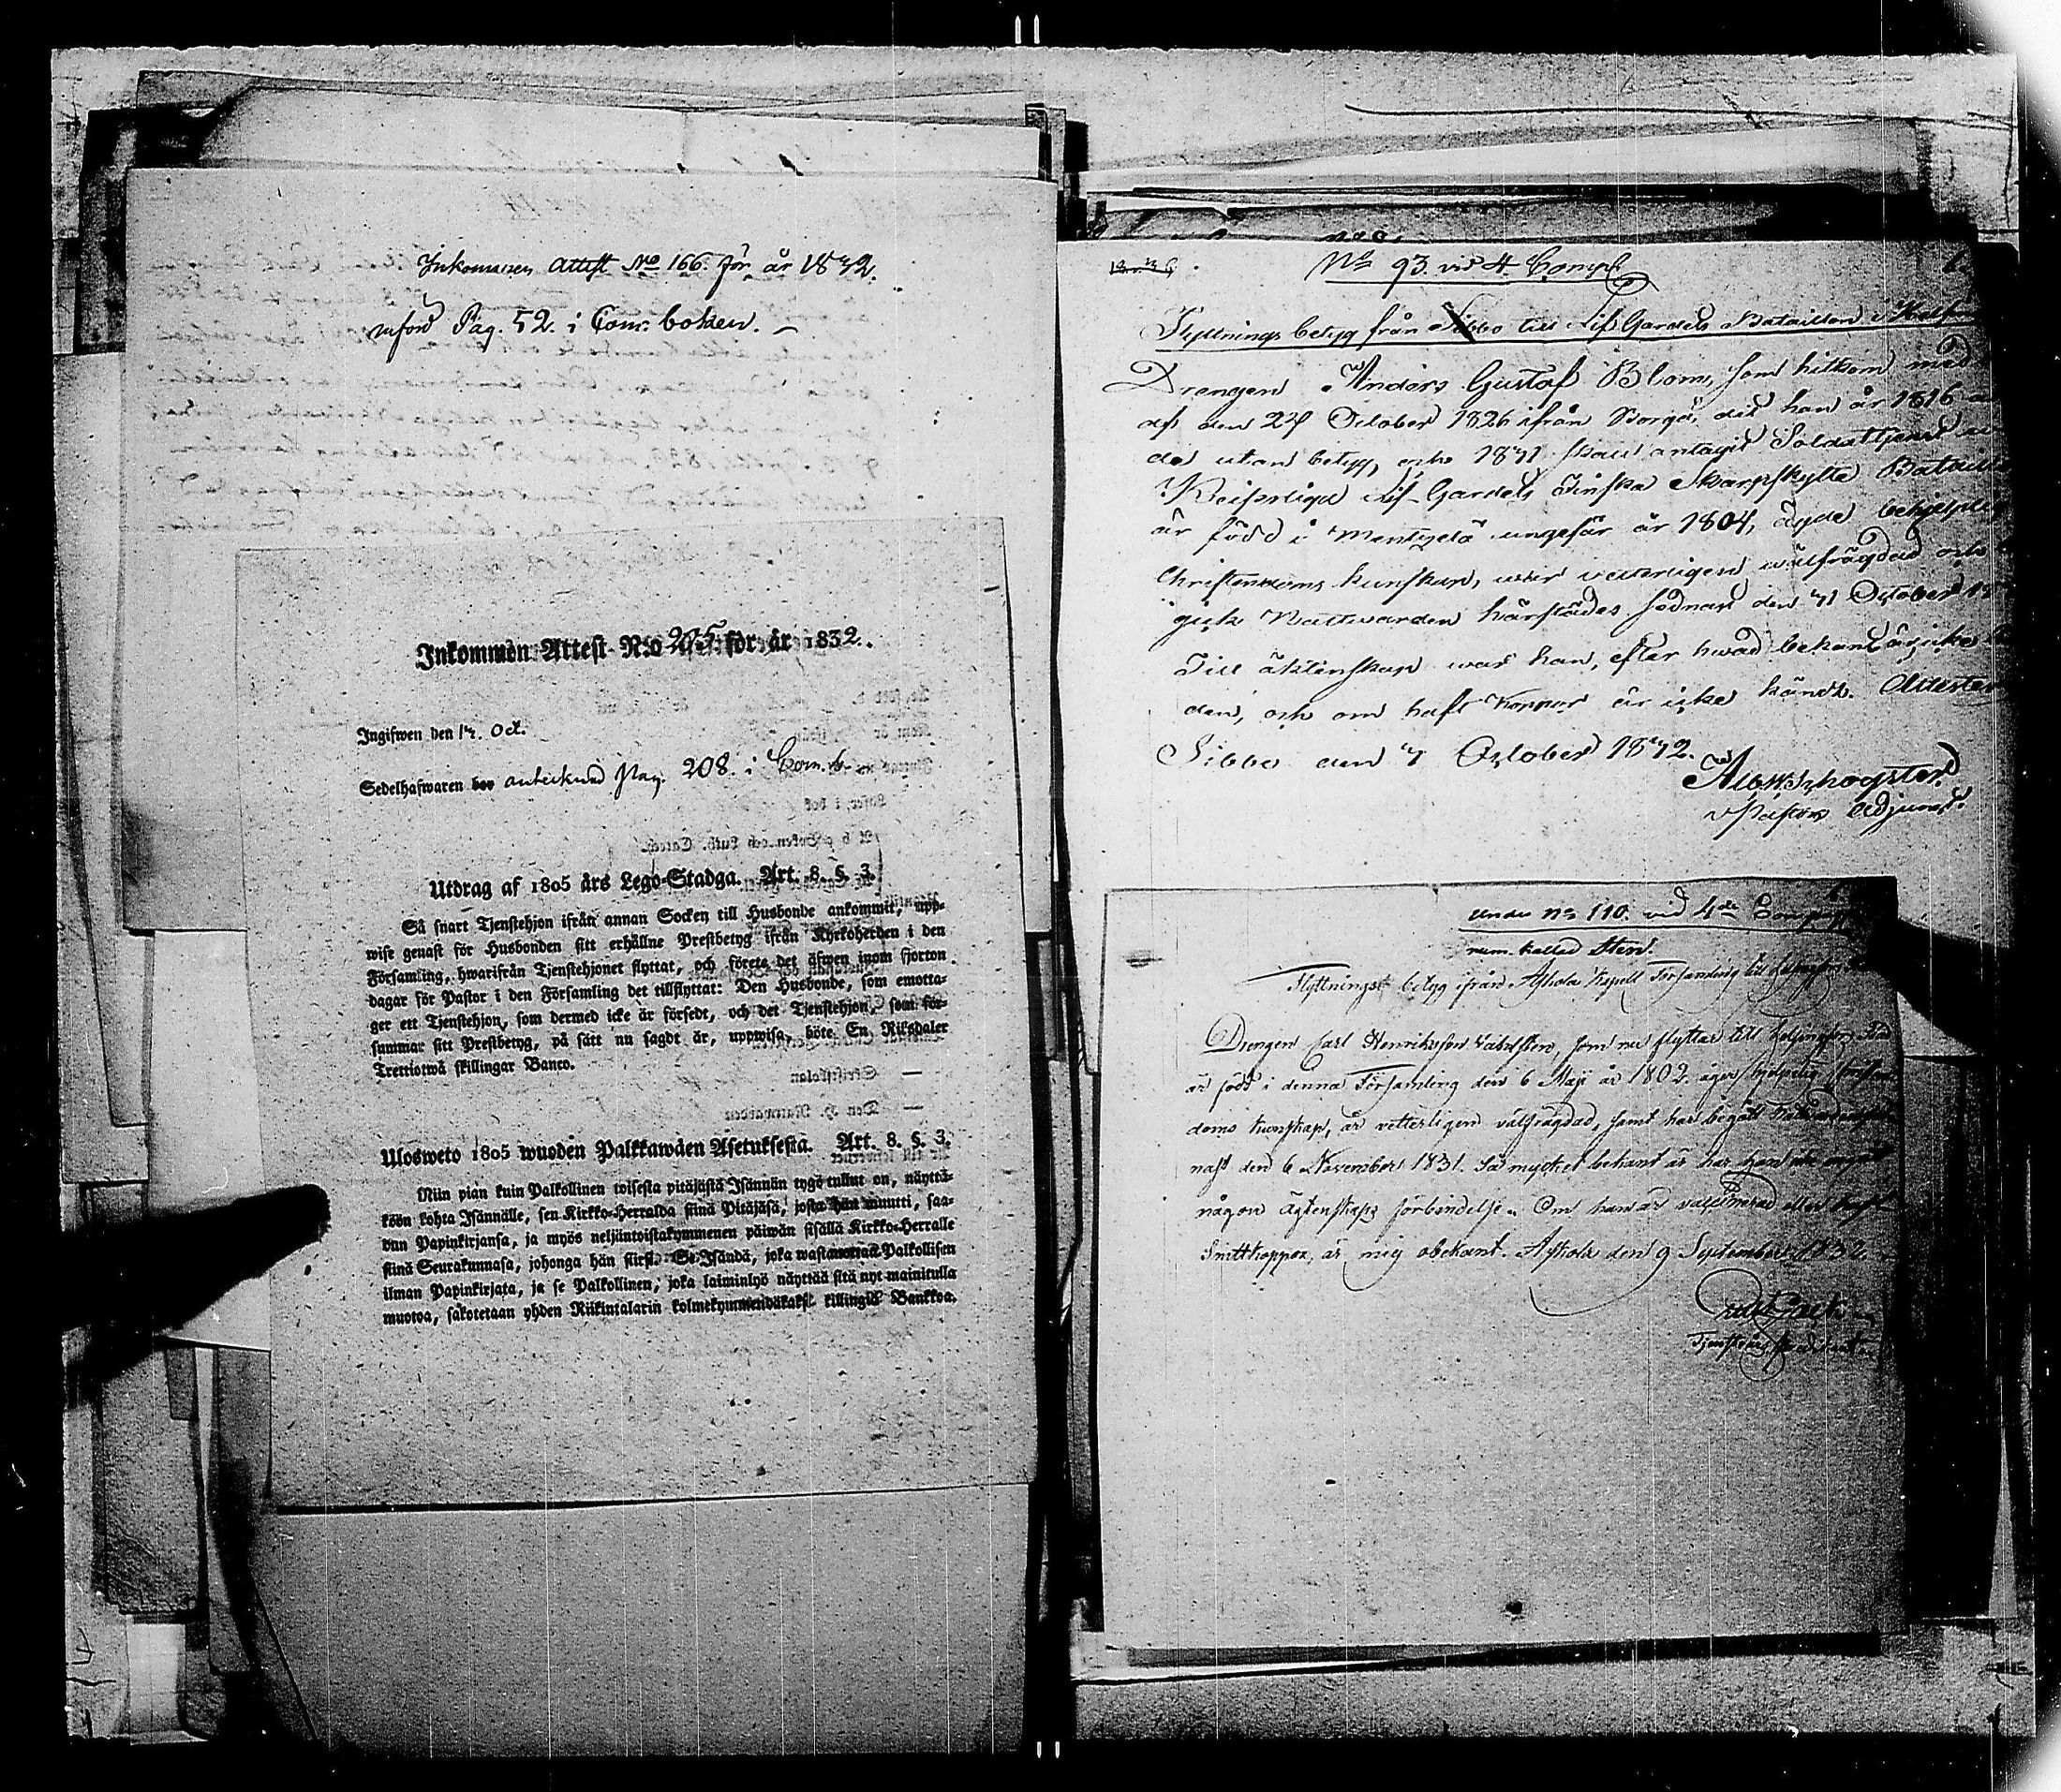 Inkommen Attest No 166. för år 1832.
införd Pag. 52. i Com. boken.
Inkommen Attest N:o 205 för år 1832.
Ingifwen den 17. Oct.
Sedelhafwaren bor antecknad Pag. 208. i Com. b.
Utdrag af 1805 års Lego-Stadga. Art. 8. §. 3.
Så snart Tjenstehjon ifrån annan Socken till Husbonde ankommit, upp-
wise genast för Husbonden sitt erhållne Prestbetyg ifrån Kyrkoherden i den
Församling, hwarifrån Tjenstehjonet flyttat, och förete det äfwen inom fjorton
dagar för Pastor i den Församling det tillflyttat: Den Husbonde, som emotta-
ger ett Tjenstehjon, som dermed icke är försedt, och det Tjenstehjon, som för-
summar sitt Prestbetyg, på sätt nu sagdt är, uppwisa, böte En Riksdaler
Trettiotwå skillingar Banco.
Ulosweto 1805 wuoden Palkkawäen Asetuksesta. Art. 8. §. 3.
Niin pian kuin Palkollinen toisesta pitäjästä Isännän tygö tullut on, näyttä-
köön kohta Isännälle, sen Kirkko-Herralda siinä Pitäjäsä, josta hän muutti, saa-
dun Papinkirjansa, ja myös neljäntoistakymmenen päiwän sisällä Kirkko-Herralle
siinä Seurakunnasa, johonga hän siirsi. Se Isändä, joka wastanottaa Palkollisen
ilman Papinkirjata, ja se Palkollinen, joka laiminlyö näyttää sitä nyt mainitulla
muotoa, sakotetaan yhden Riikintalarin kolmekymmendäkaksi killingiä Bankkoa.
No 93. vid 4 Comp.
Flyttnings betyg från Sibbo till Lif Gardets Bataillon i Helsin
Drengen Anders Gustaf Blom, som hitkom med
af den 24 October 1826 ifrån Borgå, dit han år 1816
da utan betyg, och 1831 skall antagit Soldattjenst
Keiserliga Lif-Gardets Finska Skarpskytte Batail
är född i Mentzelä ungefär år 1804, ägde behjelplig
Christendoms kunskap, war veterligen wälfrägdad och
gick Nattwarden härstädes sednast den 31 October 18
Till äktenskap war han, efter hwad bekant är, icke
den, och om haft Koppor är icke kändt. Attesteras
Sibbo den 7 October 1832.
Pastors Adjunct.
Under No 110. vid 4de Compagn
num. kallad Sten.
Flyttnings betyg ifrån Askola Kapell Församling till Helsingfors
Drengen Carl Henriksson som nu flyttar till Helsingfors Stad
är född i denna Församling den 6 Maji år 1802. äger hjelpelig Christen-
doms kunskap, är vetterligen välfrägdad, samt har begått Nattvarden
nast den 6 November 1831. Så mycket bekant är har han
någon Ägtenskaps förbindelse. Om han är vaccinerad eller haft
Smittkoppor, är mig obekant. Askola den 9 September 1832.